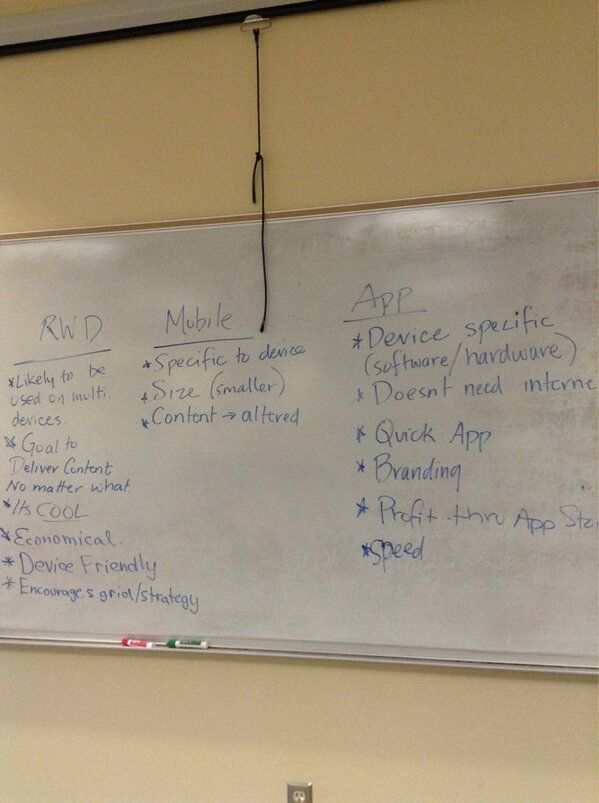 RWD
*Likely to be
used on multi.
devices.
* Goal to
Deliver Content
No matter what
*Its COOL
*Economical.
* Device Friendly
* Encourages grid/strategy
Mobile
* Specific to device
* Size (smaller)
* Content → altered
App
* Device specific
(software/hardware)
* Doesnt need interne
* Quick App
* Branding
* Profit thru App Sto
*Speed